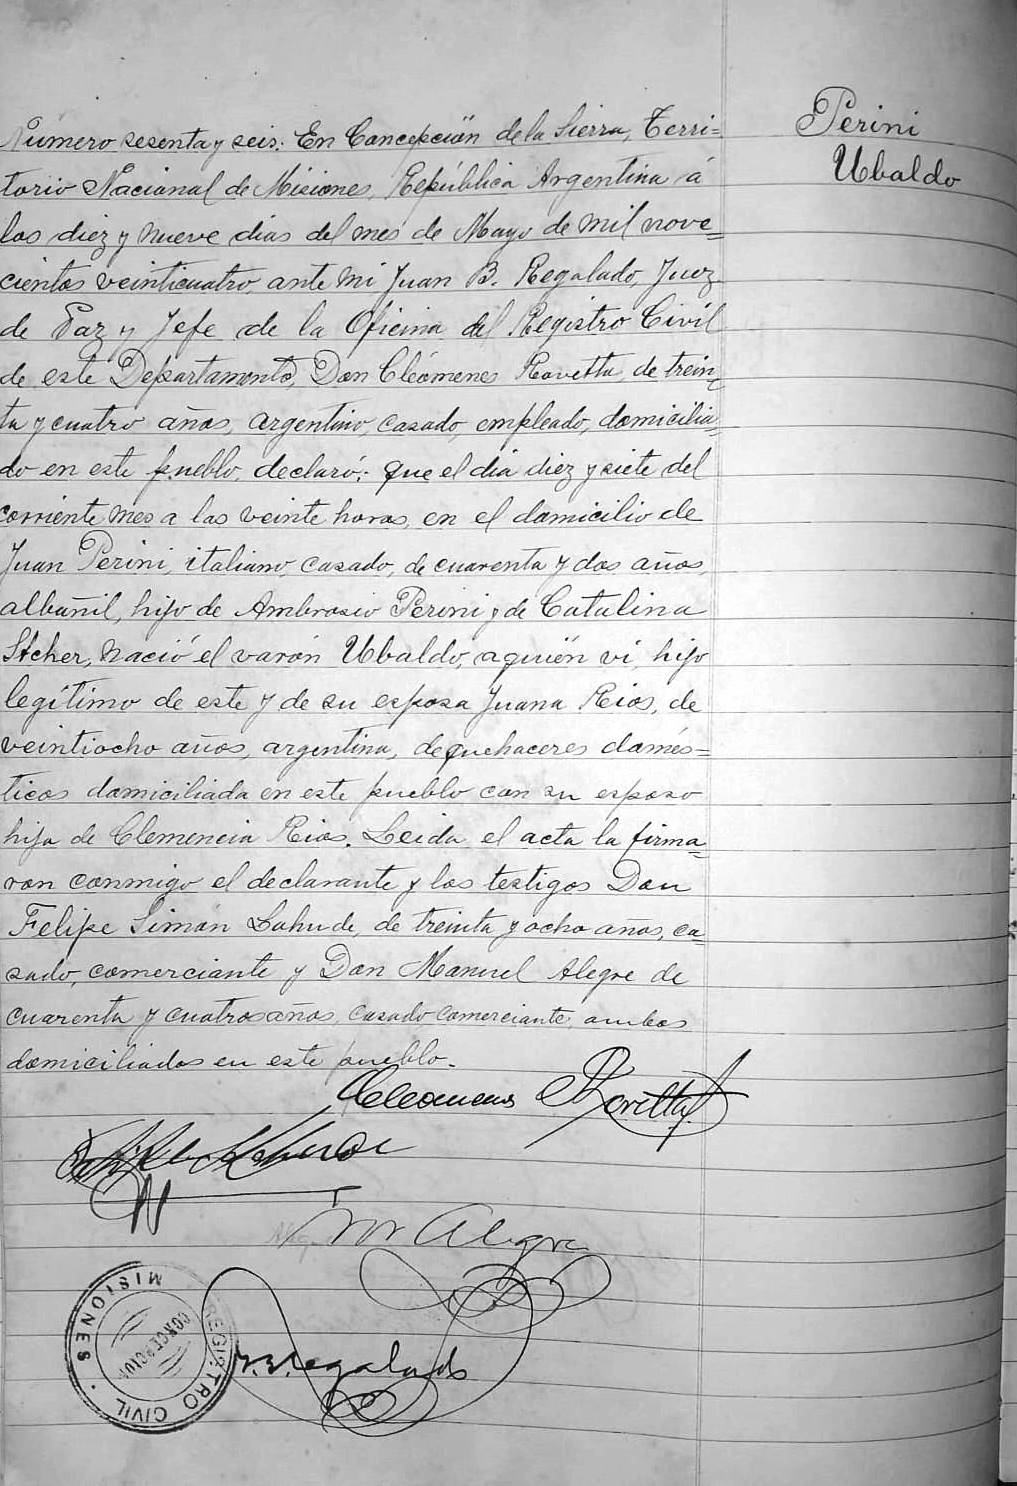 Perini
Ubaldo
Número sesenta y seis: En Concepción de la Sierra, Terri=
torio Nacional de Misiones, República Argentina á
los diez y nueve dias del mes de Mayo de mil nove=
cientos veinticuatro, ante mi Juan B. Regalado, Juez
de Paz y Jefe de la Oficina del Registro Civil
de este Departamento, Don Cleómenes Rovetta, de trein=
ta y cuatro años, argentino, casado, empleado, domicilia=
do en este pueblo, declaró: que el dia diez y siete del
corriente mes a las veinte horas, en el domicilio de
Juan Perini, italiano, casado, de cuarenta y dos años,
albañil, hijo de Ambrosio Perini y de Catalina
Stcher, nació el varón Ubaldo, a quién vi, hijo
legítimo de este y de su esposa Juana Rios, de
veintiocho años, argentina, de quehaceres domés=
ticos domiciliada en este pueblo con su esposo
hija de Clemencia Rios. Leida el acta la firma=
ron conmigo el declarante y los testigos Don
Felipe Simón Lahude, de treinta y ocho años, ca=
sado, comerciante y Don Manuel Alegre de
cuarenta y cuatro años, casado, comerciante, ambos
domiciliados en este pueblo.
Cleomenes Rovetta
M Alegre
J. B. Regalado
REGISTRO CIVIL
MISIONES
CONCEPCION